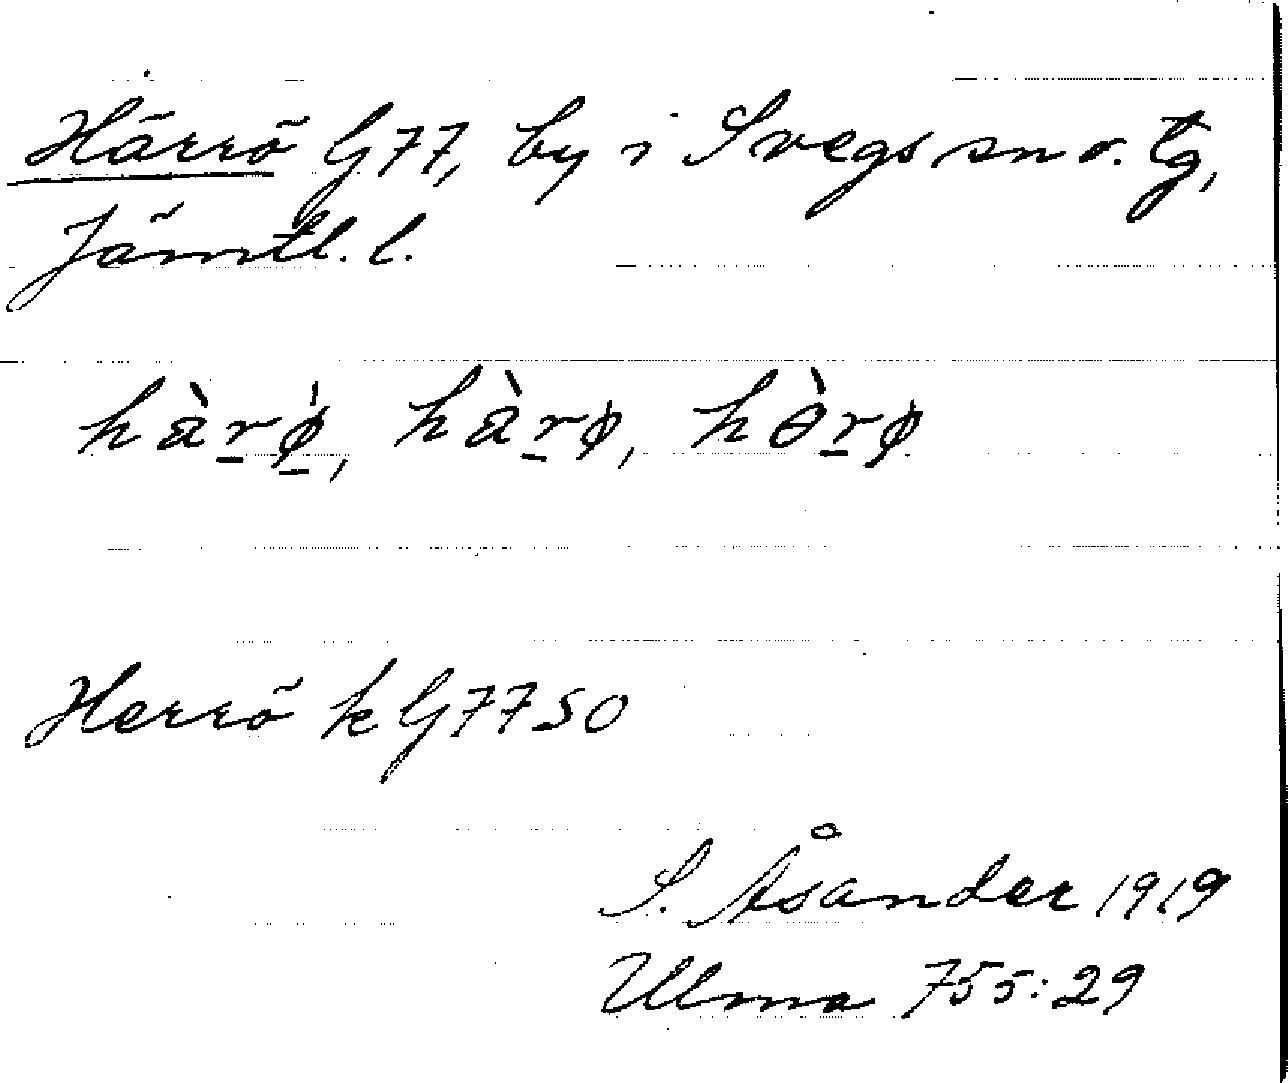 Härrö G77, by i Svegs sn o. tg,
Jämtl. l.
hàr̠ø̠̀, hàr̠ø, hòr̠ø
Herrö k G77SO
S. Åsander 1919
Ulma 755:29